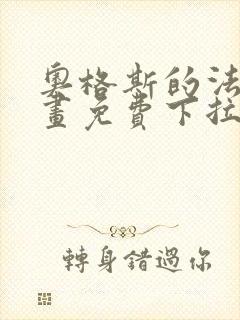 奧格斯的法
畫免費下拉
轉身錯過你